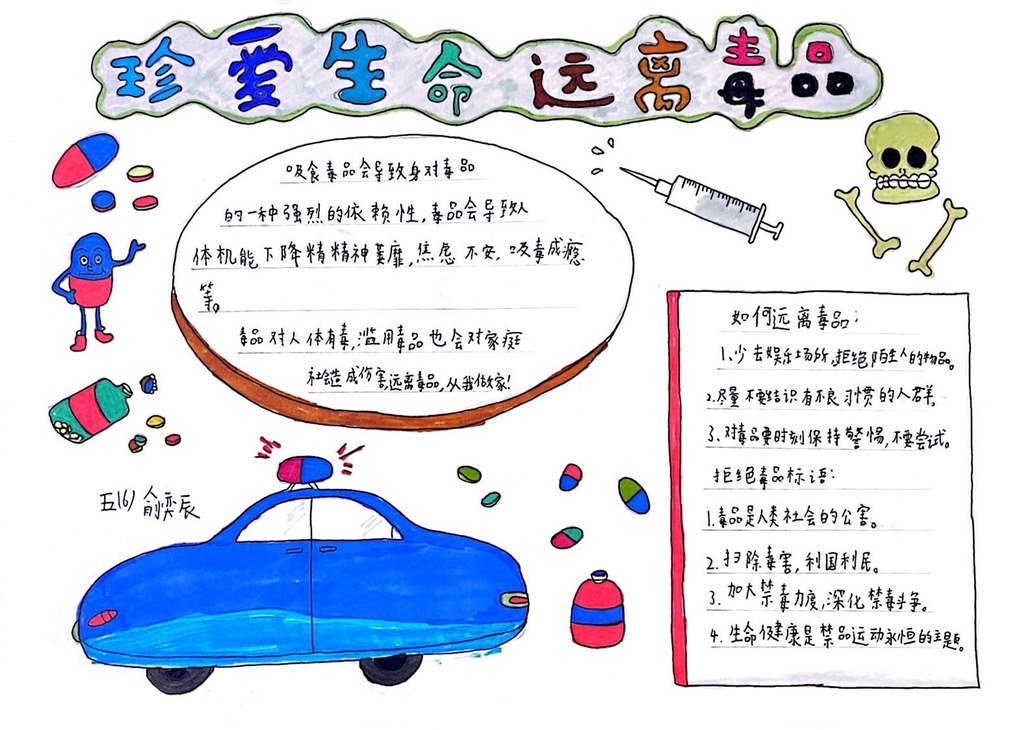 珍爱生命远离毒品
吸食毒品会导致身对毒品
的一种强烈的依赖性,毒品会导致人
体机能下降精精神萎靡,焦虑不安,吸毒成瘾
等。
毒品对人体有毒,滥用毒品也会对家庭
社会造成伤害远离毒品,从我做家!
五(6)俞奕辰
如何远离毒品:
1、少去娱乐场所,拒绝陌生人的物品。
2.尽量不要结识有不良习惯的人群。
3、对毒品要时刻保持警惕,不要尝试。
拒绝毒品标语:
1.毒品是人类社会的公害。
2.扫除毒害,利国利民。
3.加大禁毒力度,深化禁毒斗争。
4.生命健康是禁品运动永恒的主题。